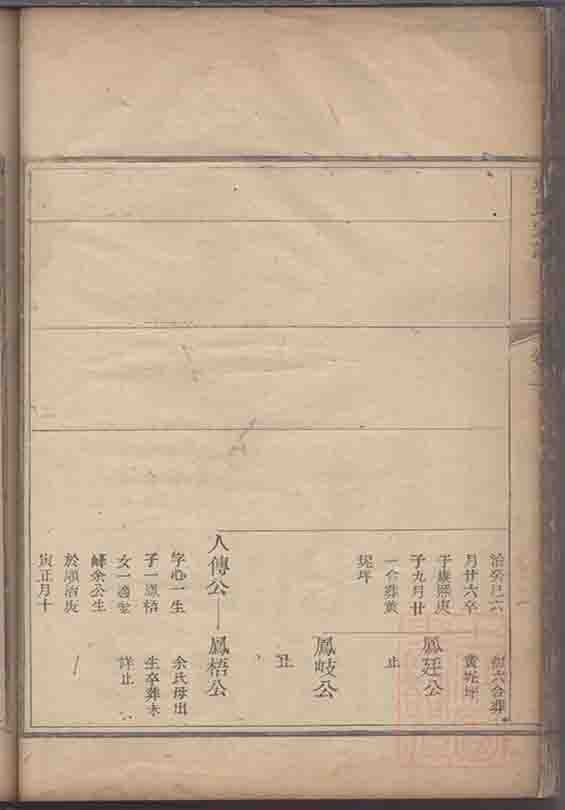 治癸巳六
月廿六卒
于康熙庚
子九月廿
一合葬黄
坭坪
初六合葬
黄坭坪
鳳廷公
止
鳳岐公
止
人傳公
鳳梧公
字心一生
子一鳳梧
女一適
余公生
於順治庚
寅正月十
余氏母出
生卒葬未
詳止